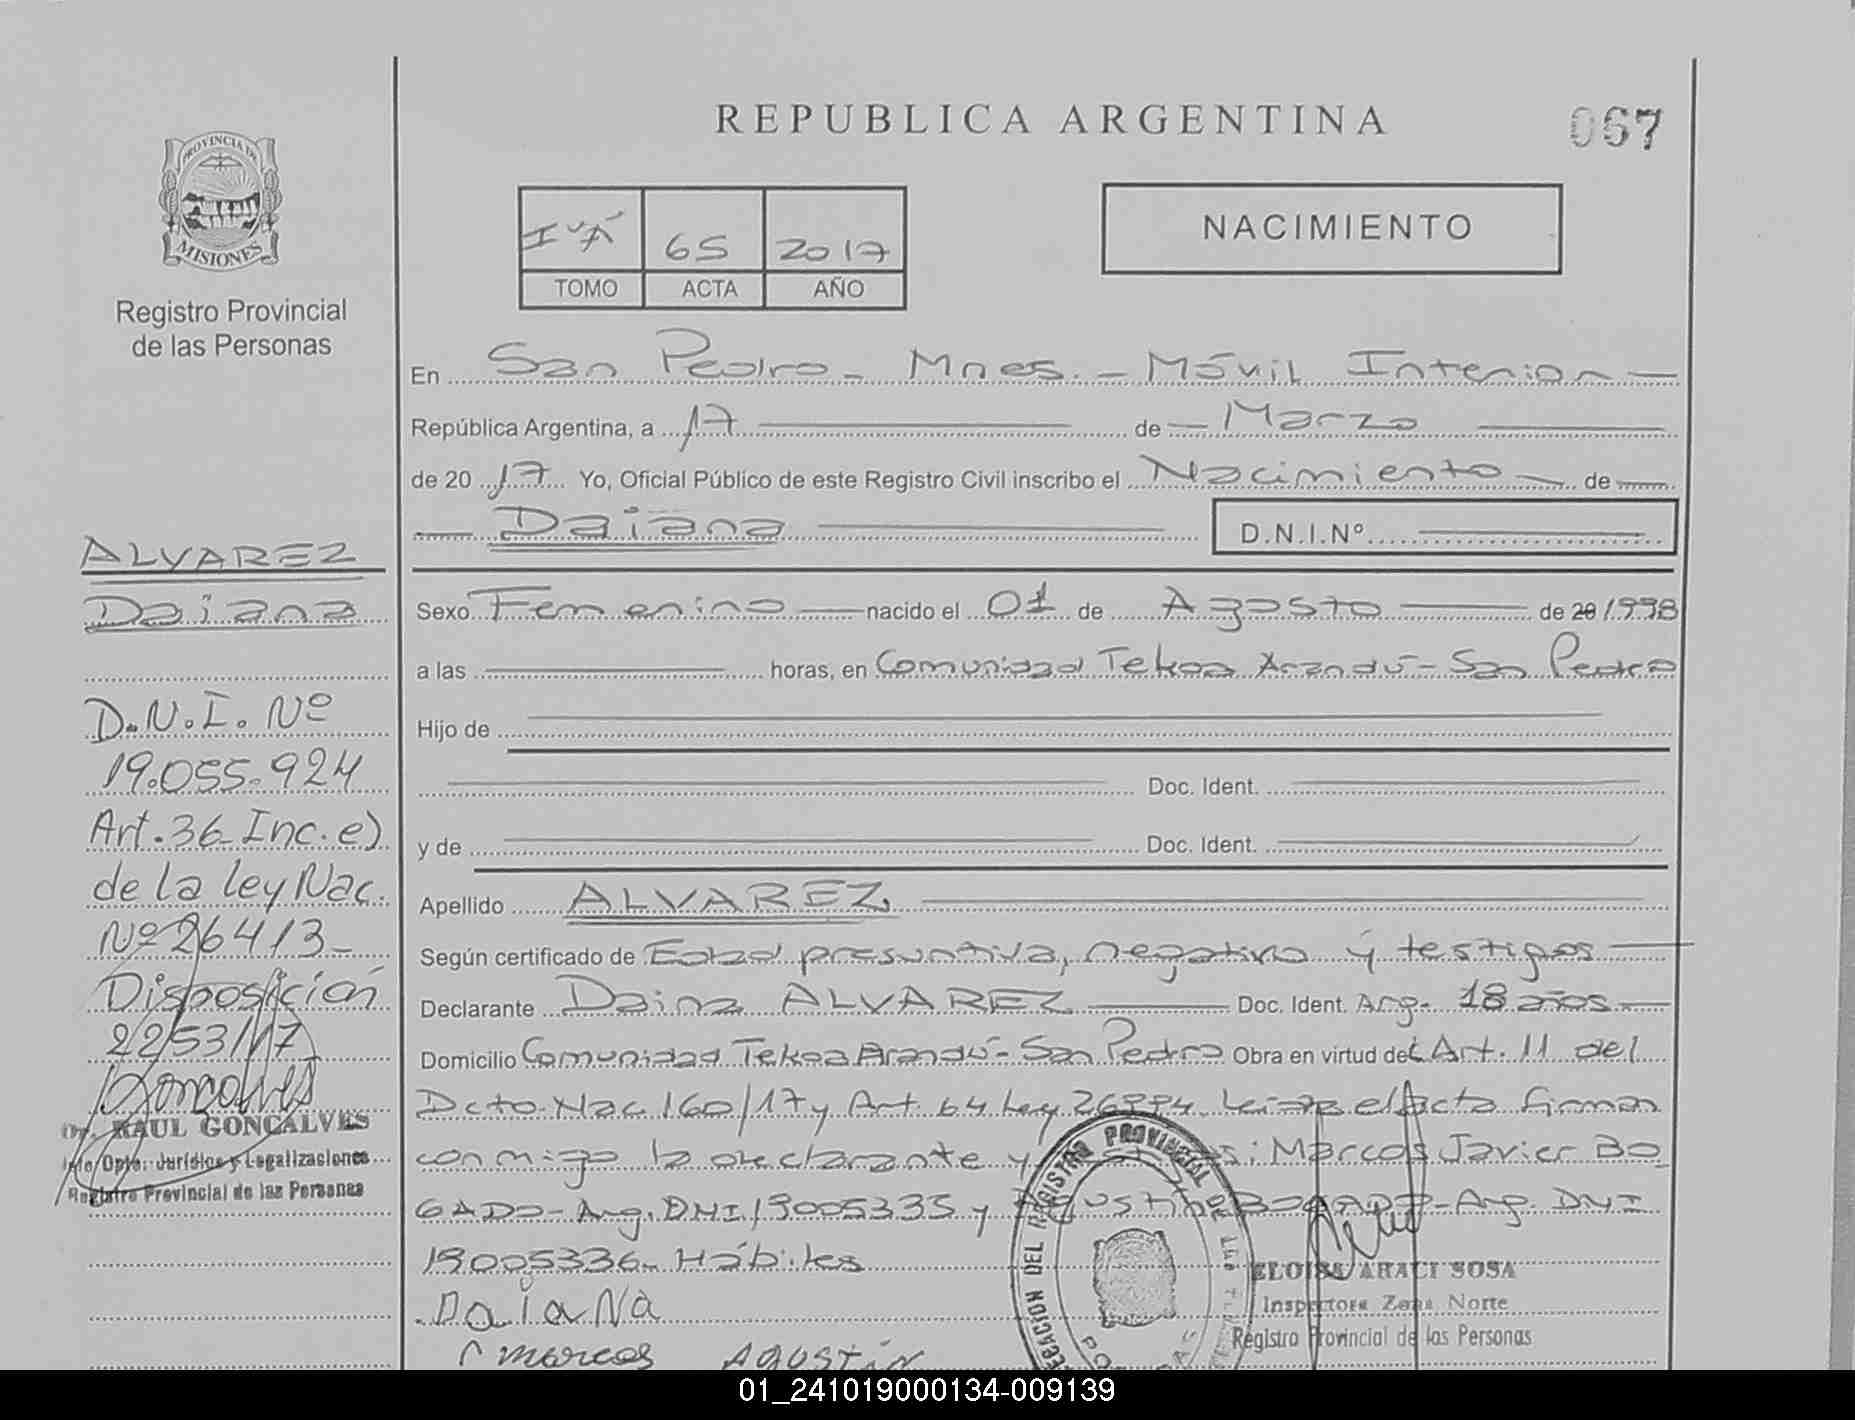 REPUBLICA ARGENTINA
067
PROVINCIA DE
MISIONES
Registro Provincial
de las Personas
65 2017
TOMO ACTA AÑO
NACIMIENTO
En San Pedro - Mnes. - Móvil Interior
República Argentina, a 17 de Marzo
de 20 17 Yo, Oficial Público de este Registro Civil inscribo el Nacimiento de
Daiana D.N.I.Nº
ALVAREZ
Daiana
D.N.I. Nº
19.055.924
Art. 36 Inc. e)
de la ley Nac.
Nº 26413-
Disposición
2253/17
Goncalves
Dr. RAUL GONCALVES
Jefe Dpto. Jurídico y Legalizaciones
Registro Provincial de las Personas
Sexo Femenino nacido el 01 de Agosto de 20 1998
a las horas, en Comunidad Tekoa Arandú - San Pedro
Hijo de
Doc. Ident.
y de Doc. Ident.
Apellido ALVAREZ
Según certificado de Edad presuntiva, negativo y testigos
Declarante Daina ALVAREZ Doc. Ident. Arg. 18 años
Domicilio Comunidad Tekoa Arandú - San Pedro Obra en virtud del Art. 11 del
Dcto. Nac 160/17 y Art. 64 Ley 26994. Leída el acta firman
conmigo la declarante y : Marcos Javier BO
GADO - Arg. DNI 19005335 y Agustín BOGADO - Arg. DNI
19005336 - Hábiles
DaiaNa
marcos AGUSTÍN
DELEGACION DEL REGISTRO PROVINCIAL DE LAS
ELOISA ARACI SOSA
Inspectora Zona Norte
Registro Provincial de las Personas
01_241019000134-009139